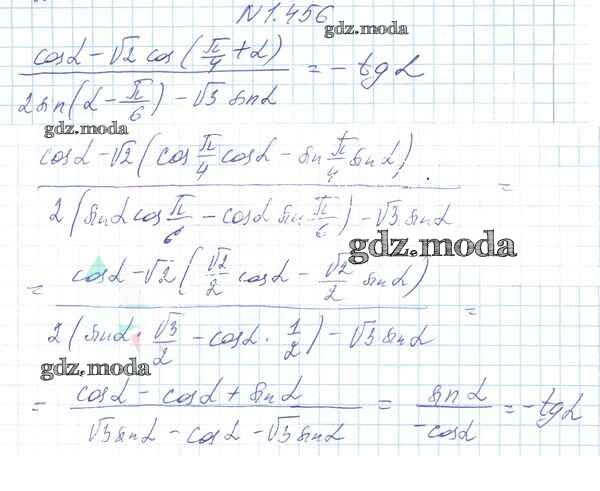 N 1.456
gdz.moda
(cosα − √2 cos(π/4 + α)) / (2sin(α − π/6) − √3 sinα) = − tgα
gdz.moda
gdz.moda
(cosα − √2(cos π/4 cosα − sin π/4 sinα)) / (2(sinα cos π/6 − cosα sin π/6) − √3 sinα) =
gdz.moda
= (cosα − √2(√2/2 cosα − √2/2 sinα)) / (2(sinα · √3/2 − cosα · 1/2) − √3 sinα) =
gdz.moda
= (cosα − cosα + sinα) / (√3 sinα − cosα − √3 sinα) = sinα / −cosα = −tgα